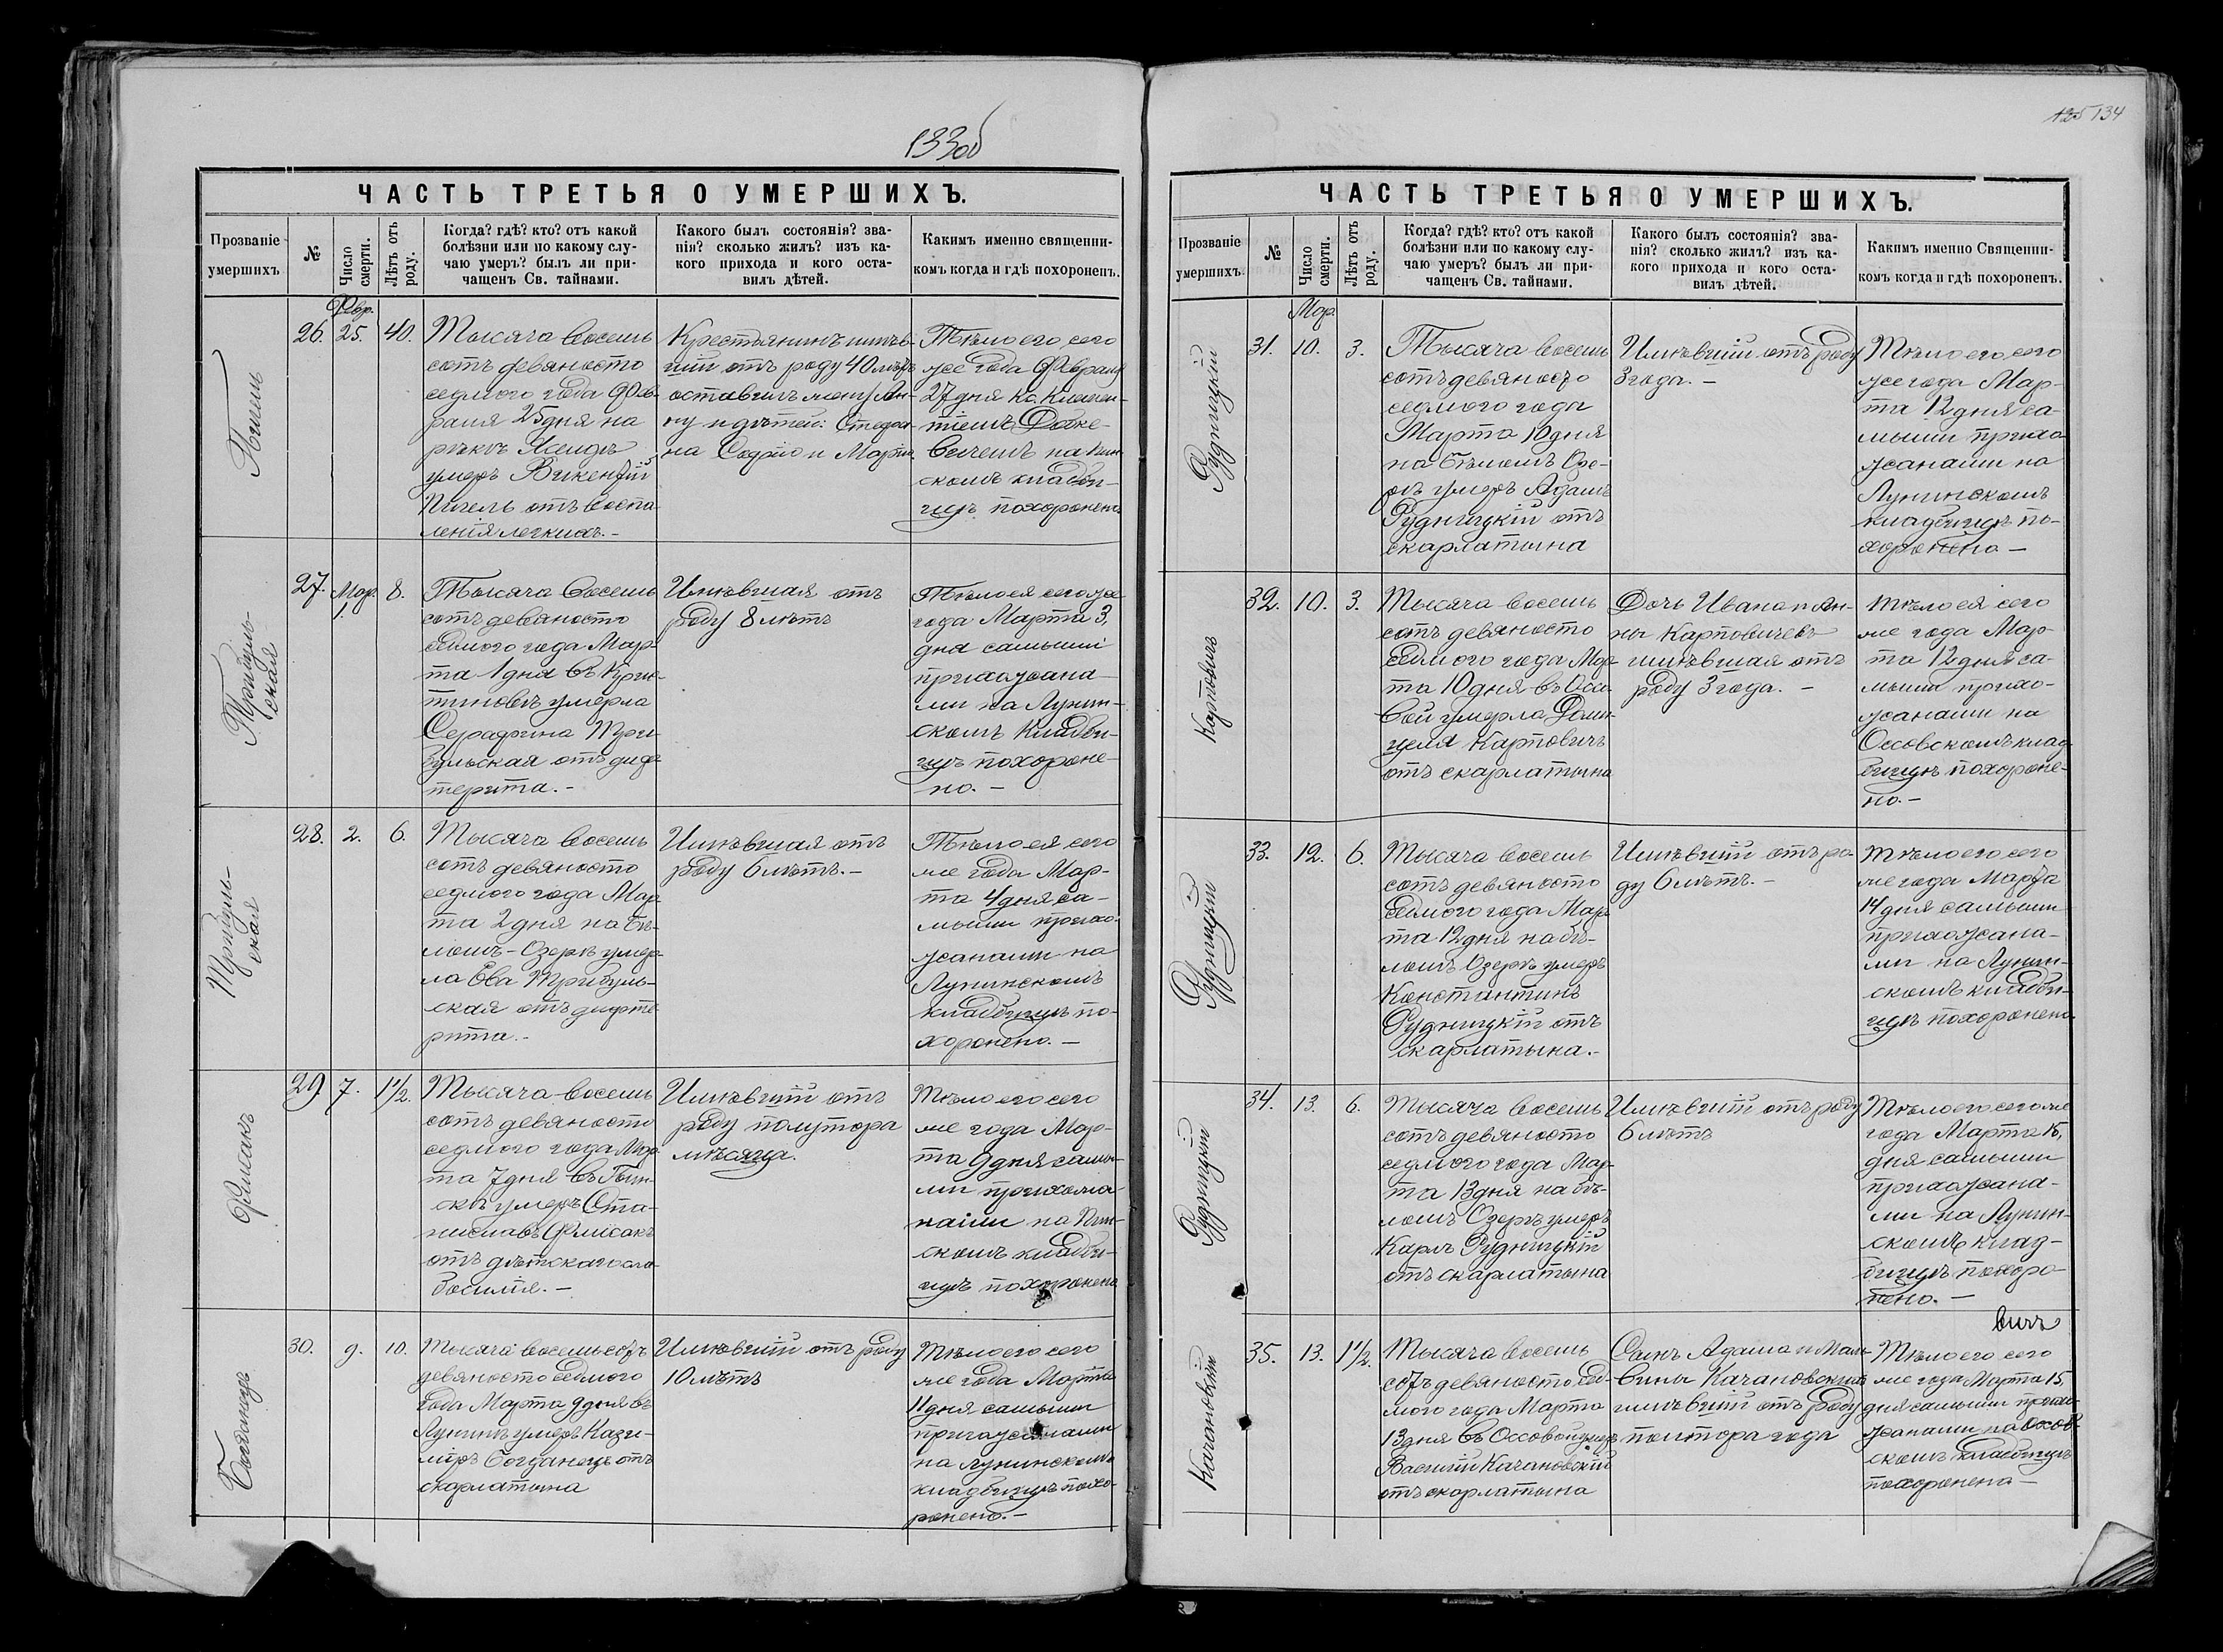 133об
ЧАСТЬ ТРЕТЬЯ О УМЕРШИХЪ.
Прозваніе умершихъ
№
Число смерти.
Лѣтъ отъ роду.
Когда? гдѣ? кто? отъ какой
болѣзни или по какому слу-
чаю умеръ? былъ ли при-
чащенъ Св. тайнами.
Какого былъ состоянія? зва-
нія? сколько жилъ? изъ ка-
кого прихода и кого оста-
вилъ дѣтей.
Какимъ именно священни-
комъ когда и гдѣ похороненъ.
Февр.
26. 25. 40.
Тысяча восемь
сотъ девяносто
седмого года Фев-
раля 25 дня на
умеръ Викентій
отъ воспа
ленія легкихъ.-
Крестьянинъ имѣв-
шій отъ роду 40 лѣтъ
оставилъ жену Ан-
ну и дѣтей: Стефа-
на Софію и Марію
Тѣло его сего
же года Февраля
27 дня Кс. Климен-
тіемъ
на Пин-
скомъ кладби-
щѣ похоронено
Трибуль-
ская
27. Мар. 1. 8.
Тысяча восемь
сотъ девяносто
седмого года Мар-
та 1 дня въ
умерла
Серафина Три-
бульская отъ диф-
терита.-
Имѣвшая отъ
роду 8 лѣтъ
Тѣло ея сего же
года Марта 3,
дня самыми
прихожана-
ми на Лунин-
скомъ кладби-
щѣ похороне-
но.-
Трибуль-
ская
28. 2. 6.
Тысяча восемь
сотъ девяносто
седмого года Мар
та 2 дня на Бѣ-
ломъ-Озерѣ умер-
ла Ева Трибуль-
ская отъ дифте-
рита.-
Имѣвшая отъ
роду 6 лѣтъ.-
Тѣло ея сего
же года Мар-
та 4 дня са-
мыми прихо-
жанами на
Лунинскомъ
кладбищѣ по-
хоронено.-
Флисакъ
29. 7. 1½.
Тысяча восемь
сотъ девяносто
седмого года Мар
та 7 дня въ Пин-
скѣ умеръ Ста-
ниславъ Флисакъ
отъ дѣтскаго сла-
босилія.-
Имѣвшій отъ
роду полутора
мѣсяца.
Тѣло его сего
же года Мар-
та 9 дня самы-
ми прихожа-
нами на Пин-
скомъ кладби-
щѣ похоронено
Богданецъ
30. 9. 10.
Тысяча восемь сотъ
девяносто седмого
года Марта 9 дня въ
Лунинѣ умеръ Кази-
міръ Богданецъ отъ
скарлатына
Имѣвшій отъ роду
10 лѣтъ
Тѣло его сего
же года Марта
11 дня самыми
прихожанами
на Лунинскомъ
кладбищѣ похо-
ронено.-
125 134
ЧАСТЬ ТРЕТЬЯ О УМЕРШИХЪ.
Прозваніе умершихъ
№
Число смерти.
Лѣтъ отъ роду.
Когда? гдѣ? кто? отъ какой
болѣзни или по какому слу-
чаю умеръ? былъ ли при-
чащенъ Св. тайнами.
Какого былъ состоянія? зва-
нія? сколько жилъ? изъ ка-
кого прихода и кого оста-
вилъ дѣтей.
Какимъ именно Священни-
комъ когда и гдѣ похороненъ.
Мар.
Рудницкій
31. 10. 3.
Тысяча восемь
сотъ девяносто
седмого года
Марта 10 дня
на Бѣломъ Озе-
рѣ умеръ Адамъ
Рудницкій отъ
скарлатына
Имѣвшій отъ роду
3 года.-
Тѣло его сего
же года Мар-
та 12 дня са-
мыми прихо
жанами на
Лунинскомъ
кладбищѣ по-
хоронено-
Карповичъ
32. 10. 3.
Тысяча восемь
сотъ девяносто
седмого года Мар
та 10 дня въ Оссо-
вой умерла Доми-
целя Карповичъ
отъ скарлатына
Дочь Ивана и Ан-
ны Карповичевъ
имѣвшая отъ
роду 3 года.-
Тѣло ея сего
же года Мар-
та 12 дня са-
мыми прихо-
жанами на
Оссовскомъ клад-
бищѣ похороне-
но.-
Рудницкій
33. 12. 6.
Тысяча восемь
сотъ девяносто
седмого года Мар
та 12 дня на бѣ-
ломъ Озерѣ умеръ
Константинъ
Рудницкій отъ
скарлатына.-
Имѣвшій отъ ро-
ду 6 лѣтъ.-
Тѣло его сего
же года Марта
14 дня самыми
прихожана-
ми на Лунин-
скомъ кладби-
щѣ похоронено
Рудницкій
34. 13. 6.
Тысяча восемь
сотъ девяносто
седмого года Мар
та 13 дня на бѣ-
ломъ Озерѣ умеръ
Карлъ Рудницкій
отъ скарлатына
Имѣвшій отъ роду
6 лѣтъ
Тѣло его сего же
года Марта 15,
дня самыми
прихожана-
ми на Лунин-
скомъ клад-
бищѣ похоро-
нено.-
Качановскій
35. 13. 1½.
Тысяча восемь
сотъ девяносто сед-
мого года Марта
13 дня въ Оссовой умеръ
Василій Качановскій
отъ скарлатына
Сынъ Адама и Маль-
вины Качановскихъ
имѣвшій отъ роду
полтора года
Тѣло его сего
же года Марта 15
дня самыми прихо-
жанами на Оссов-
скомъ кладбищѣ
похоронено-